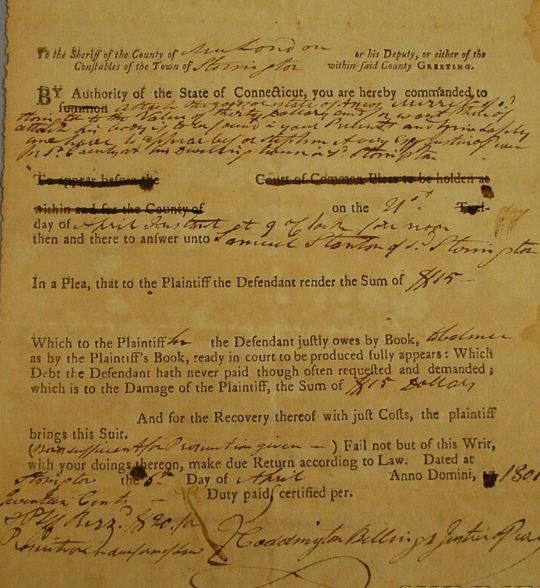 To the Sheriff of the County of New London or his Deputy, or either of the
Constables of the Town of Stonington within said County GREETING.
BY Authority of the State of Connecticut, you are hereby commanded to
summon attach the goods or estate of Amos Merrett of sd
Stonington to the Value of thirty Dollars and for want thereof
attach his body if to be found in your Precincts and him safely
have to appear before Stephen Avery Esqr Justice of Peace
for sd County at his Dwelling house in sd Stonington
To appear before the Court of Common Pleas to be holden at
within and for the County of on the 21st day
day of April Instant at 9 Clock fore noon
then and there to answer unto Samuel Stanton of sd Stonington
In a Plea, that to the Plaintiff the Defendant render the Sum of $15
Which to the Plaintiff he the Defendant justly owes by Book, Ballance
as by the Plaintiff's Book, ready in court to be produced fully appears: Which
Debt the Defendant hath never paid though often requested and demanded;
which is to the Damage of the Plaintiff, the Sum of $15 Dollars
And for the Recovery thereof with just Costs, the plaintiff
brings this Suit.
( sufficient for Prosecution given ) Fail not but of this Writ,
with your doings thereon, make due Return according to Law. Dated at
Stonington the 6th Day of April Anno Domini, 1801
Seventeen Cents Duty paid, certified per.
$20
Coddington Billings Justice of Peace
Prosecution